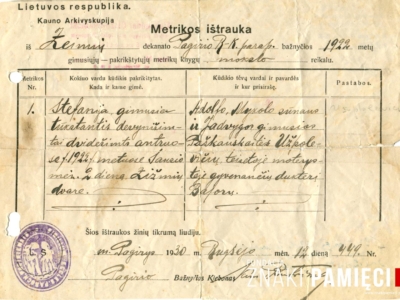 Lietuvos respublika.
Kauno Arkivyskupija
Metrikos ištrauka
iš Žeimių dekanato Pagirio R-K. parap. bažnyčios 1922 metų
gimusiųjų — pakrikštytųjų metrikų knygų mokslo reikalu.
Metrikos Nr.
Kokiuo vardu kūdikis pakrikštytas.
Kada ir kame gimė.
Kūdikio tėvų vardai ir pavardės
ir kur prisirašę.
Pastabos.
1.
Stefanija gimusia
tūkstantis devynišim-
tai dvidešimts antruo-
se /1922/ metuose Sausio
mėn. 2 dieną
dvare.
Adolfo, Mykolo sūnaus
ir Jadvygos gimusios
teistoje moterys-
tėje gyvenančių dukterį
Šios ištraukos žinių tikrumą liudiju.
L. S.
m. Pagirys 1930 m. Rugsėjo mėn. 12 dieną 449 Nr.
Pagirio Bažnyčios Klebonas
ZNAKI PAMIĘCI